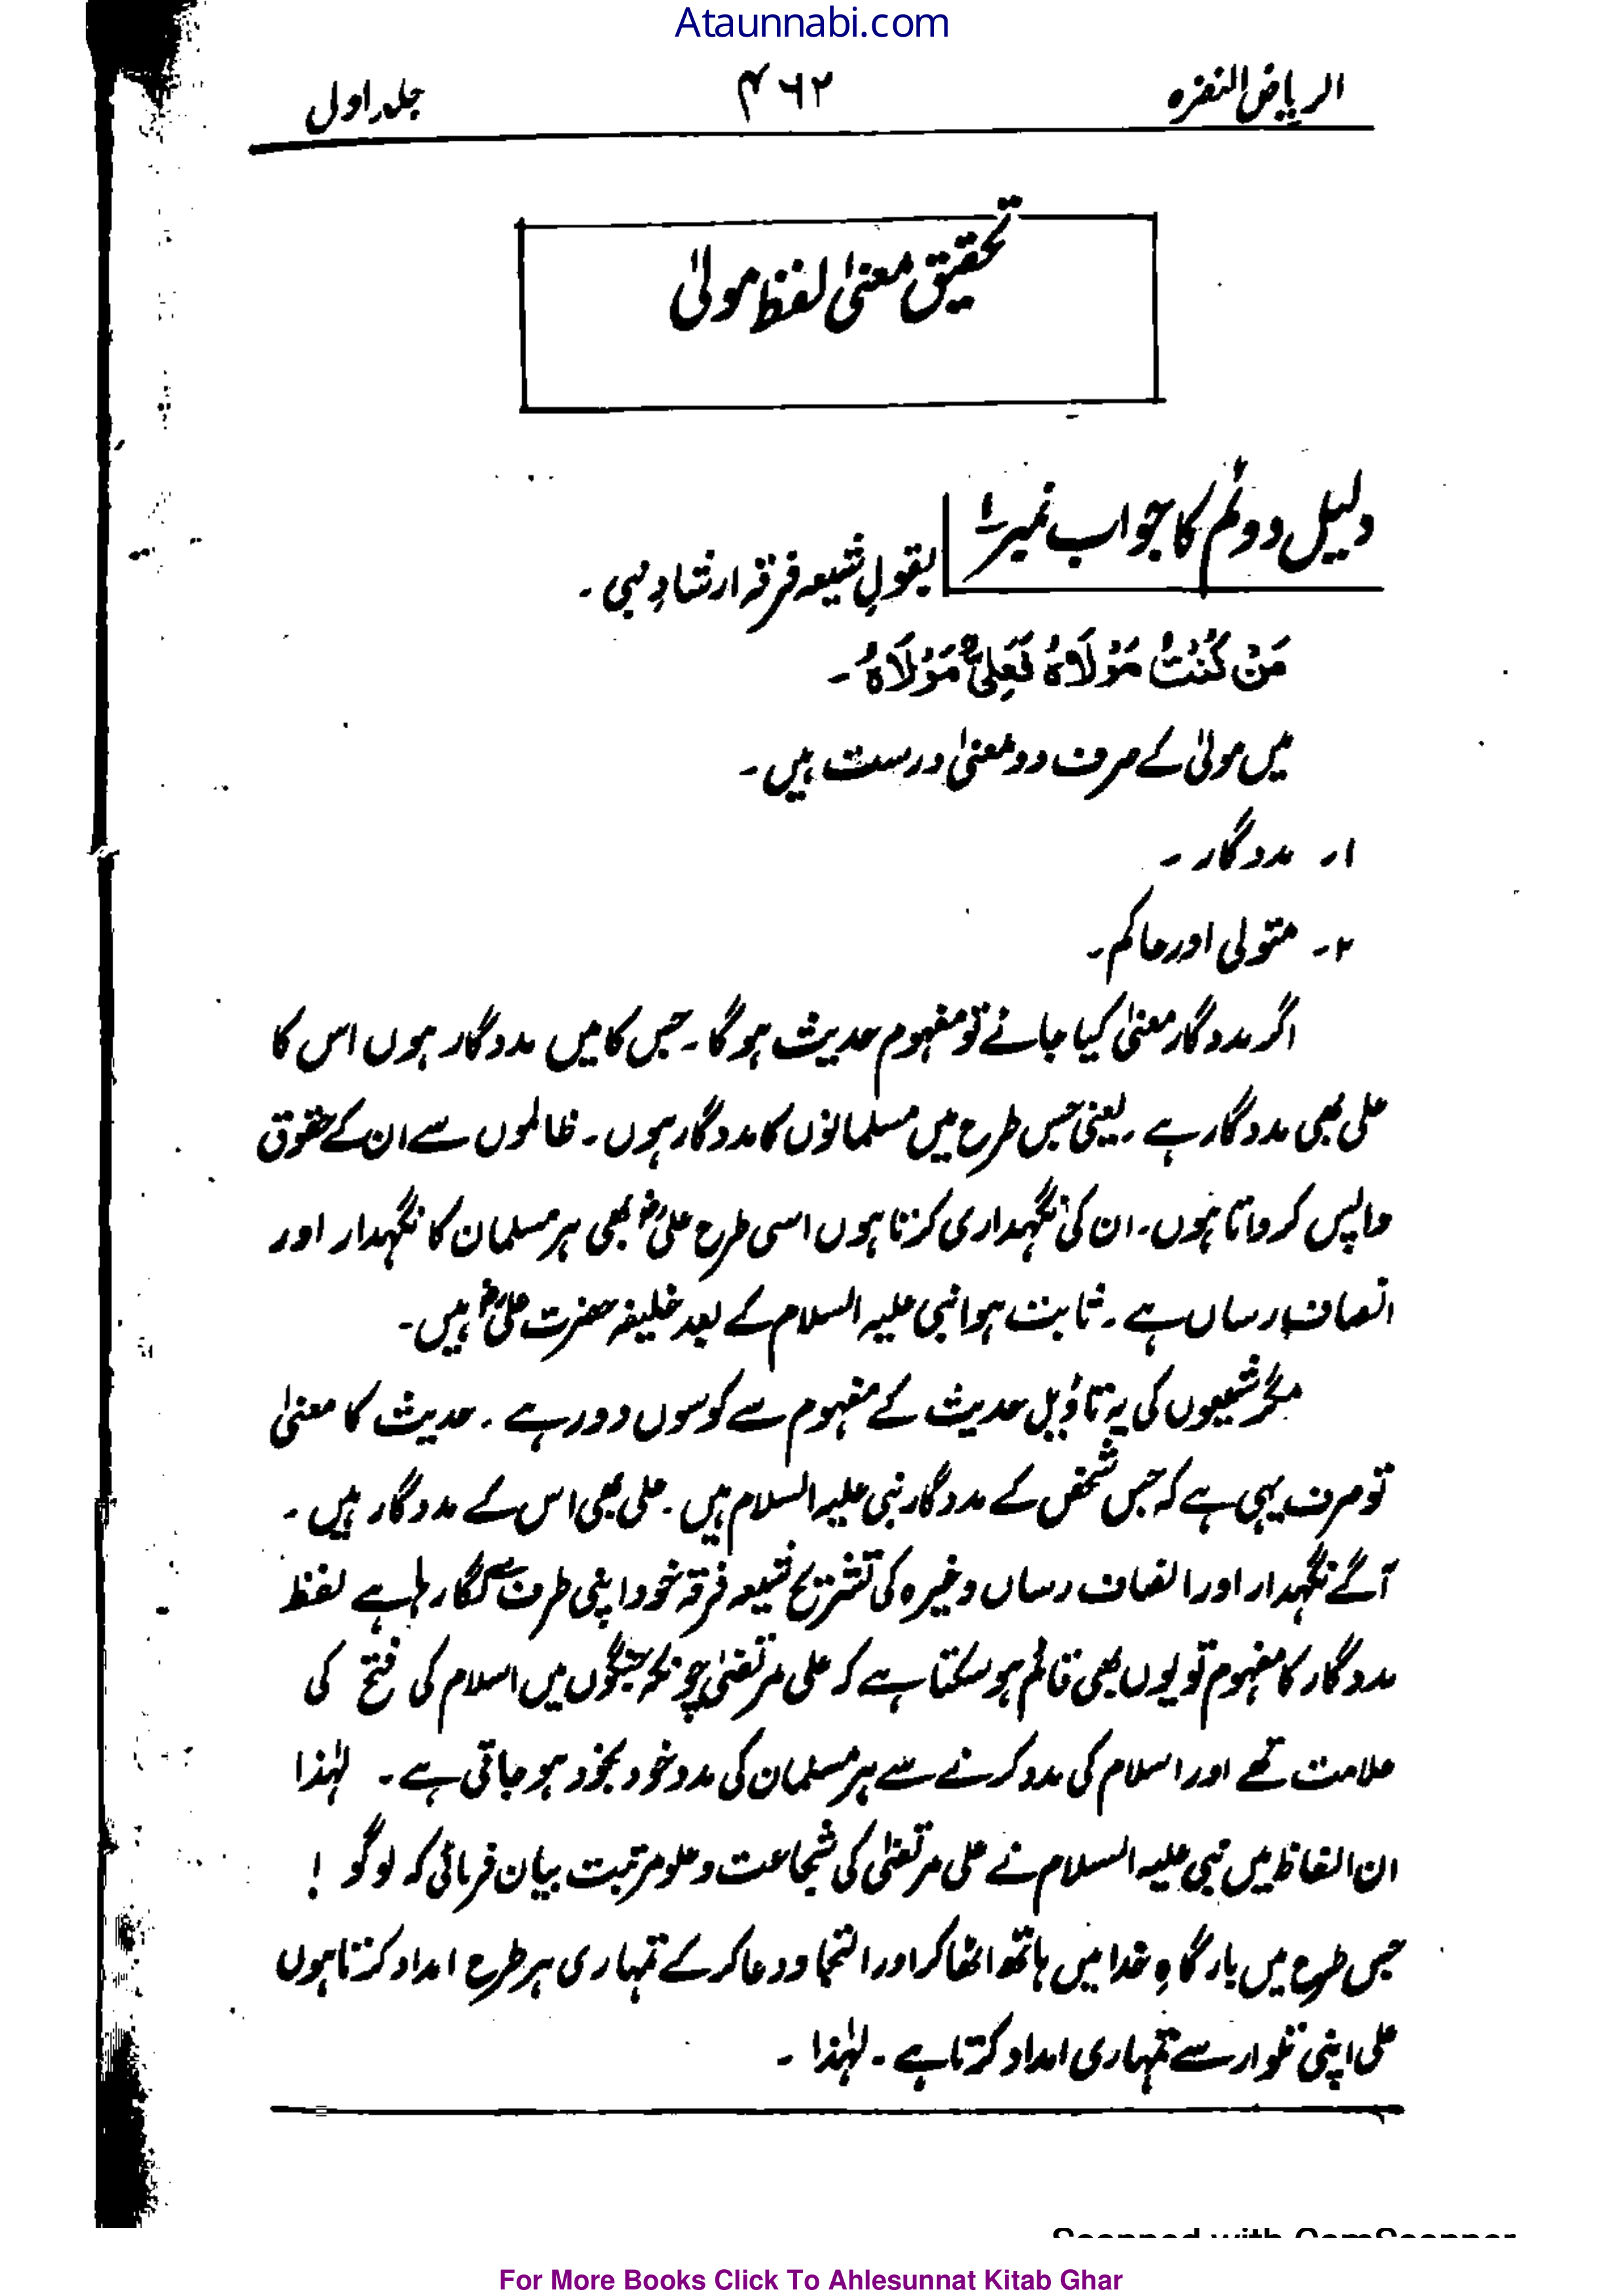 Ataunnabi.com
الریاض النضرہ ۴۶۲ جلد اول
تحقیق معنیٰ لفظ مولیٰ
دلیل دوئم کا جواب نمبر ۱
بقولِ شیعہ فرقہ ارشادِ نبی ۔
مَنْ کُنْتُ مَوْلَاہُ فَعَلِیٌّ مَوْلَاہُ ۔
میں مولیٰ کے صرف دو معنیٰ درست ہیں ۔
۱۔ مددگار ۔
۲۔ متولی اور حاکم ۔
اگر مددگار معنیٰ کیا جائے تو مفہوم حدیث ہو گا ۔ جس کا میں مددگار ہوں اس کا
علی بھی مددگار ہے ۔ یعنی جس طرح میں مسلمانوں کا مددگار ہوں ۔ ظالموں سے ان کے حقوق
واپس کرواتا ہوں ۔ ان کی نگہداری کرتا ہوں اسی طرح علیؓ بھی ہر مسلمان کا نگہدار اور
انصاف رساں ہے ۔ ثابت ہوا نبی علیہ السلام کے بعد خلیفہ حضرت علیؓ ہیں ۔
مگر شیعوں کی یہ تاویل حدیث کے مفہوم سے کوسوں دور ہے ۔ حدیث کا معنیٰ
تو صرف یہی ہے کہ جس شخص کے مددگار نبی علیہ السلام ہیں ۔ علی بھی اس کے مددگار ہیں ۔
آگے نگہدار اور انصاف رساں وغیرہ کی تشریح شیعہ فرقہ خود اپنی طرف سے لگا رہا ہے لفظ
مددگار کا مفہوم تو یوں بھی قائم ہو سکتا ہے کہ علی مرتضیٰ چونکہ جنگوں میں اسلام کی فتح کی
علامت تھے اور اسلام کی مدد کرنے سے ہر مسلمان کی مدد خود بخود ہو جاتی ہے ۔ لہٰذا
ان الفاظ میں نبی علیہ السلام نے علی مرتضیٰ کی شجاعت و علو مرتبت بیان فرمائی کہ لوگو !
جس طرح میں بارگاہِ خدا میں ہاتھ اٹھا کر اور التجا و دعا کر کے تمہاری ہر طرح امداد کرتا ہوں
علی اپنی تلوار سے تمہاری امداد کرتا ہے ۔ لہٰذا ۔
Scanned with CamScanner
For More Books Click To Ahlesunnat Kitab Ghar